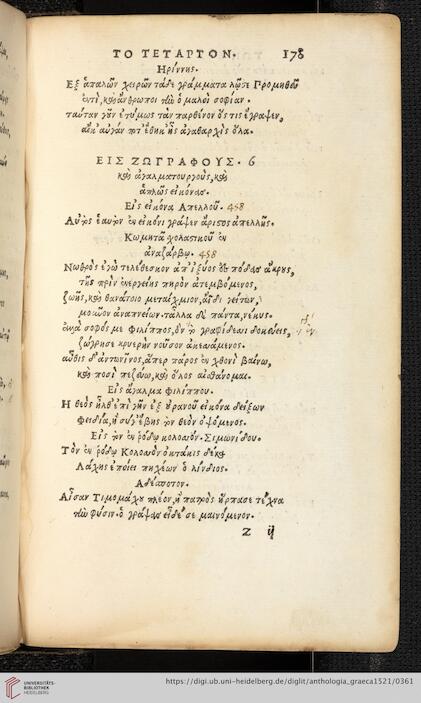 ΤΟ ΤΕΤΑΡΤΟΝ. 178
Ηρίννης.
Εξ ἁπαλῶν χειρῶν τάδε γράμματα λῷστε Προμηθεῦ
ἐντὶ, καὶ ἄνθρωποι τὶν ὁμαλοὶ σοφίαν.
ταύταν γοῦν ἐτύμως τὰν παρθένον ὅστις ἔγραψεν,
αἰ κ' αὐδάν ποτέθηκ' ἦς ἀγαθαρχὶς ὅλα.
ΕΙΣ ΖΩΓΡΑΦΟΥΣ. 6
καὶ ἀγαλματουργοὺς, καὶ
ἁπλῶς εἰκόνας.
Εἰς εἰκόνα Απελλοῦ. 458
Αὐτὸς ἑαυτὸν ἐν εἰκόνι γράψεν ἄριστος ἀπελλῆς.
Κωμητᾶ χολαστικοῦ ἐν
ἀναζάρβῳ. 458
Νωθρὸς ἐγὼ τελέθεσκον ἀπ' ἰξύος ἐς πόδας ἄκρους,
τῆς πρὶν ἐνεργείης πηρὸν ἀτεμβόμενος,
ζωῆς, καὶ θανάτοιο μεταίχμιον, ἄϊδι γείτων,
μοῦνον ἀναπνείων. τἄλλα δὲ πάντα, νέκυς.
ἀλλὰ σοφός με φίλιππος, ὃν ἐν γραφίδεσσι δοκεύεις,
ζώγρησε κρυερὴν νοῦσον ἀκεσάμενος.
αὖθις δ' ἀντωνῖνος, ἅπερ πάρος ἐν χθονὶ βαίνω,
καὶ ποσὶ πεζεύω, καὶ ὅλος αἰσθάνομαι.
Εἰς ἄγαλμα φιλίππου.
Η θεὸς ἦλθ' ἐπὶ γῆν ἐξ οὐρανοῦ εἰκόνα δείξων
φειδία, ἢ σύγ' ἔβης τὸν θεὸν ὀψόμενος.
Εἰς τὸν ἐν ῥόδῳ κολοσσόν. Σιμωνίδου.
Τὸν ἐν ῥόδῳ Κολοσσὸν ὀκτάκις δέκα
Λάχης ἐποίει πηχέων ὁ λίνδιος.
Αδέσποτον.
Αἶσαν Τιμομάχου πλέον, ἢ πατρὸς ἥρπασε τέχνα
τὰν φύσιν. ὁ γράψας εἶδέ σε μαινόμενον.
Z ij
UNIVERSITÄTS-
BIBLIOTHEK
HEIDELBERG
https://digi.ub.uni-heidelberg.de/diglit/anthologia_graeca1521/0361